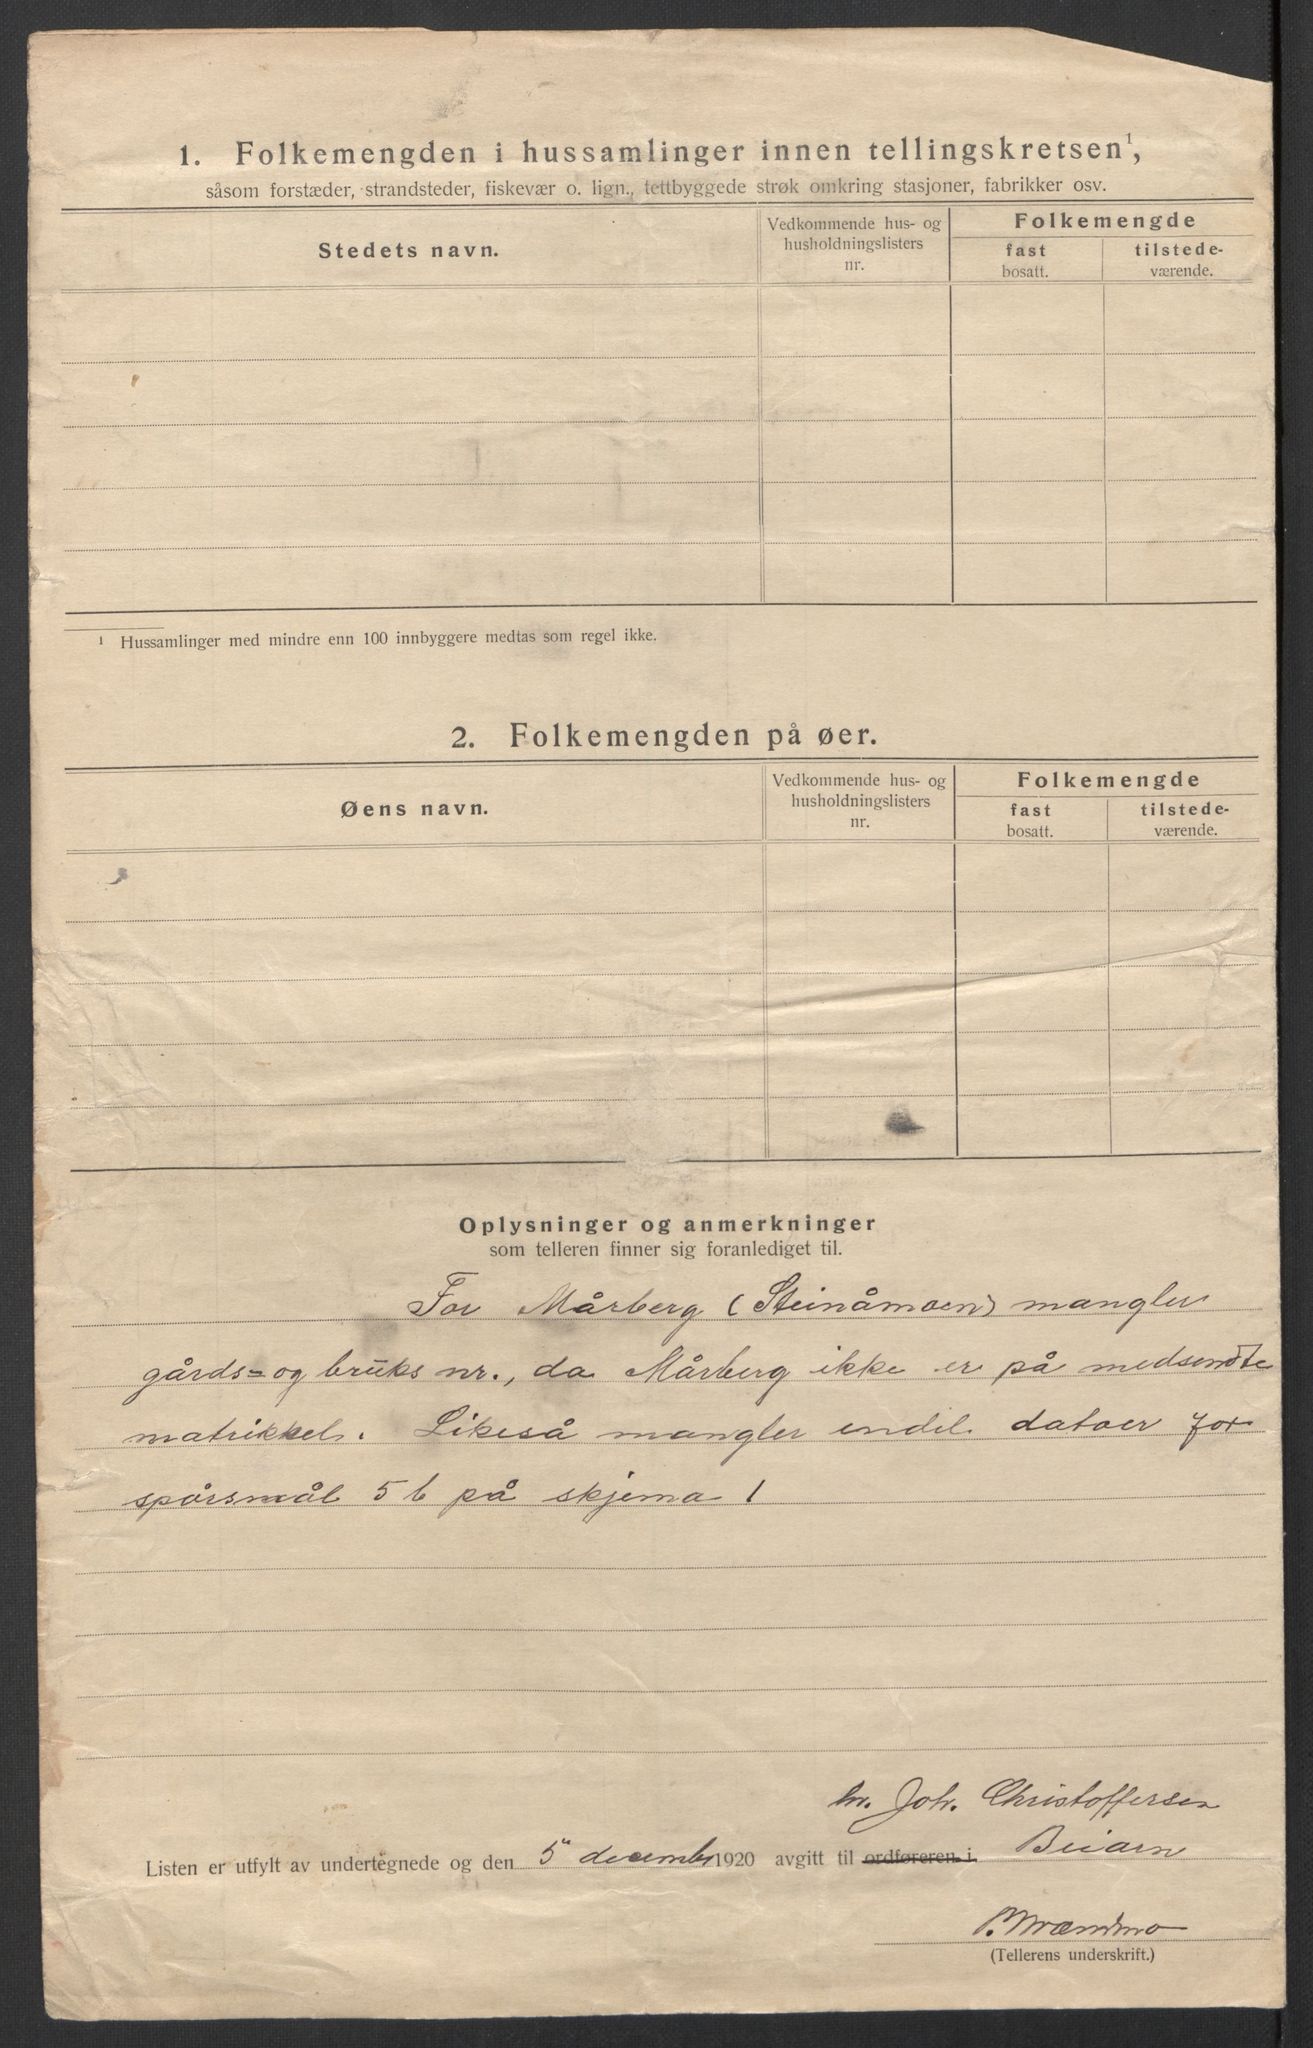 1. Folkemengden i hussamlinger innen tellingskretsen¹,
såsom forstæder, strandsteder, fiskevær o. lign., tettbyggede strøk omkring stasjoner, fabrikker osv.
Stedets navn.
Vedkommende hus- og
husholdningslisters
nr.
Folkemengde
fast
bosatt.
tilstede-
værende.
¹ Hussamlinger med mindre enn 100 innbyggere medtas som regel ikke.
2. Folkemengden på øer.
Øens navn.
Vedkommende hus- og
husholdningslisters
nr.
Folkemengde
fast
bosatt.
tilstede-
værende.
Oplysninger og anmerkninger
som telleren finner sig foranlediget til.
For Mårberg (Steinåmoen) mangler
gårds= og bruks nr., da Mårberg ikke er på medsendte
matrikkel. Likeså mangler endel datoer for
spørsmål 5 b på skjema 1
hr. Joh. Christoffersen
Listen er utfylt av undertegnede og den 5" decemb 1920 avgitt til ordføreren i Beiarn
(Tellerens underskrift.)